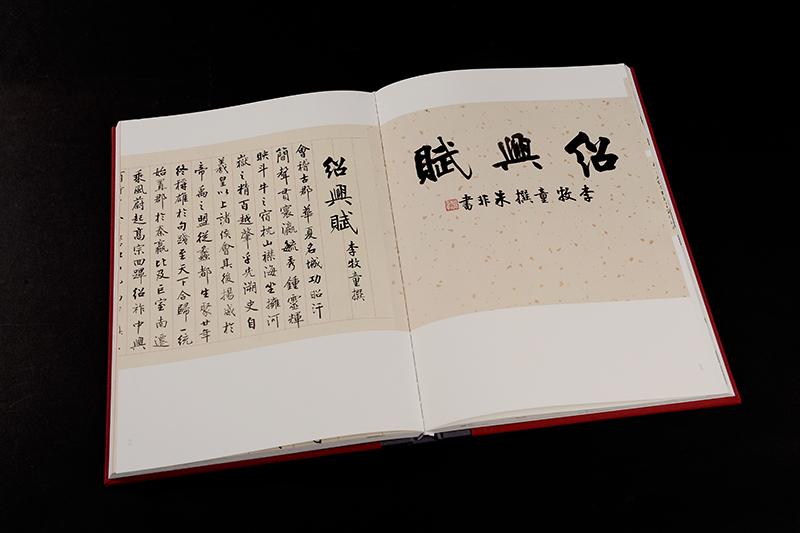 紹興賦
李牧童撰 朱非書
紹興賦 李牧童撰
會稽古郡華夏名城功昭汗
簡聲貫寰瀛毓秀鍾靈輝
映斗牛之宿枕山襟海坐擁河
嶽之精百越肇乎先溯史自
羲皇以上諸侯會其後揚威於
帝禹之盟從蠡都生聚廿年
終稱雄於句踐至天下合歸一統
始置郡於秦嬴比及巨室南遷
乘風蔚起高宗四蹕紹祚中興